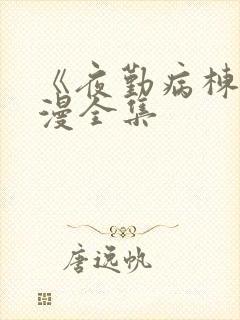 《夜勤病栋
漫全集
唐逸帆